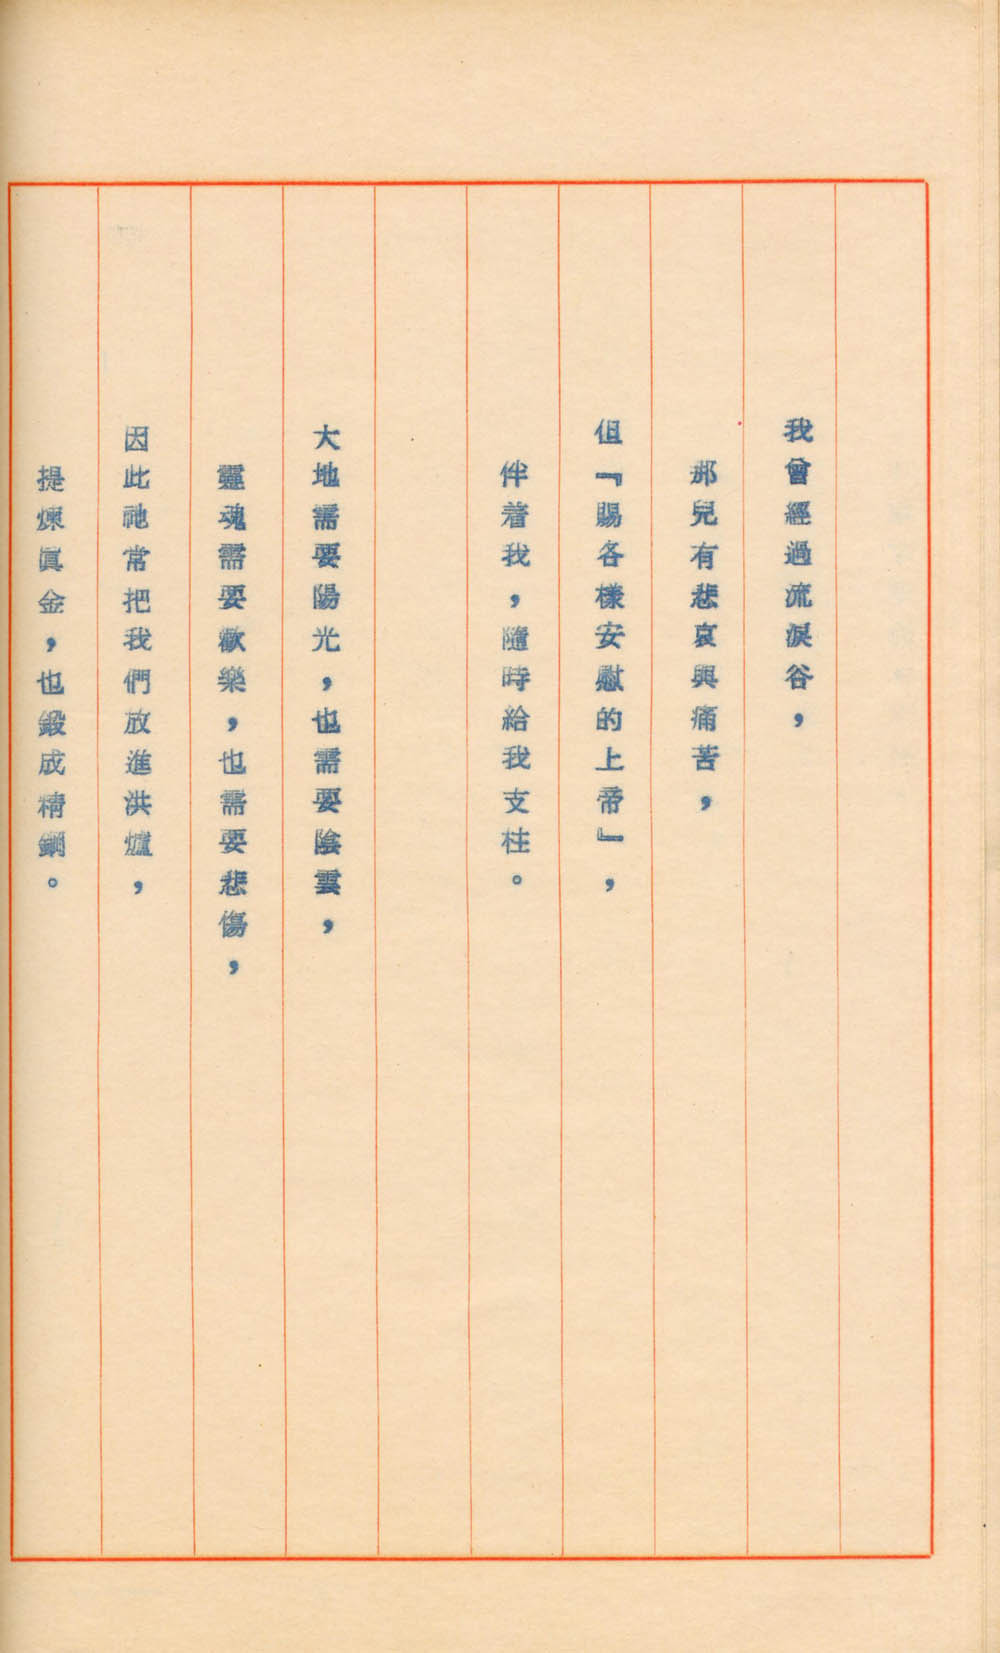 我曾經過流淚谷，
那兒有悲哀與痛苦，
但『賜各樣安慰的上帝』，
伴着我，隨時給我支柱。
大地需要陽光，也需要陰雲，
靈魂需要歡樂，也需要悲傷，
因此祂常把我們放進洪爐，
提煉眞金，也鍛成精鋼。